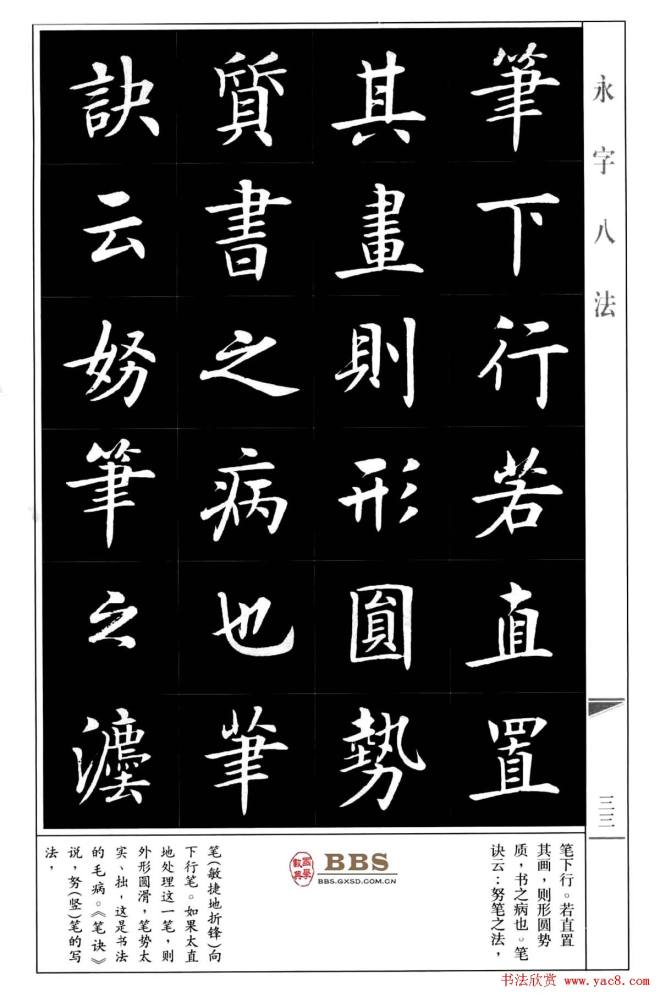 永字八法
筆下行若直置
其畫則形圓勢
質書之病也筆
訣云努筆之灋
三三
笔下行。若直置
其画，则形圆势
质，书之病也。笔
诀云：努笔之法，
BBS
BBS.GXSD.COM.CN
笔（敏捷地折锋）向
下行笔。如果太直
地处理这一笔，则
外形圆滑，笔势太
实、拙，这是书法
的毛病。《笔诀》
说，努（竖）笔的写
法，
书法欣赏 www.yac8.com